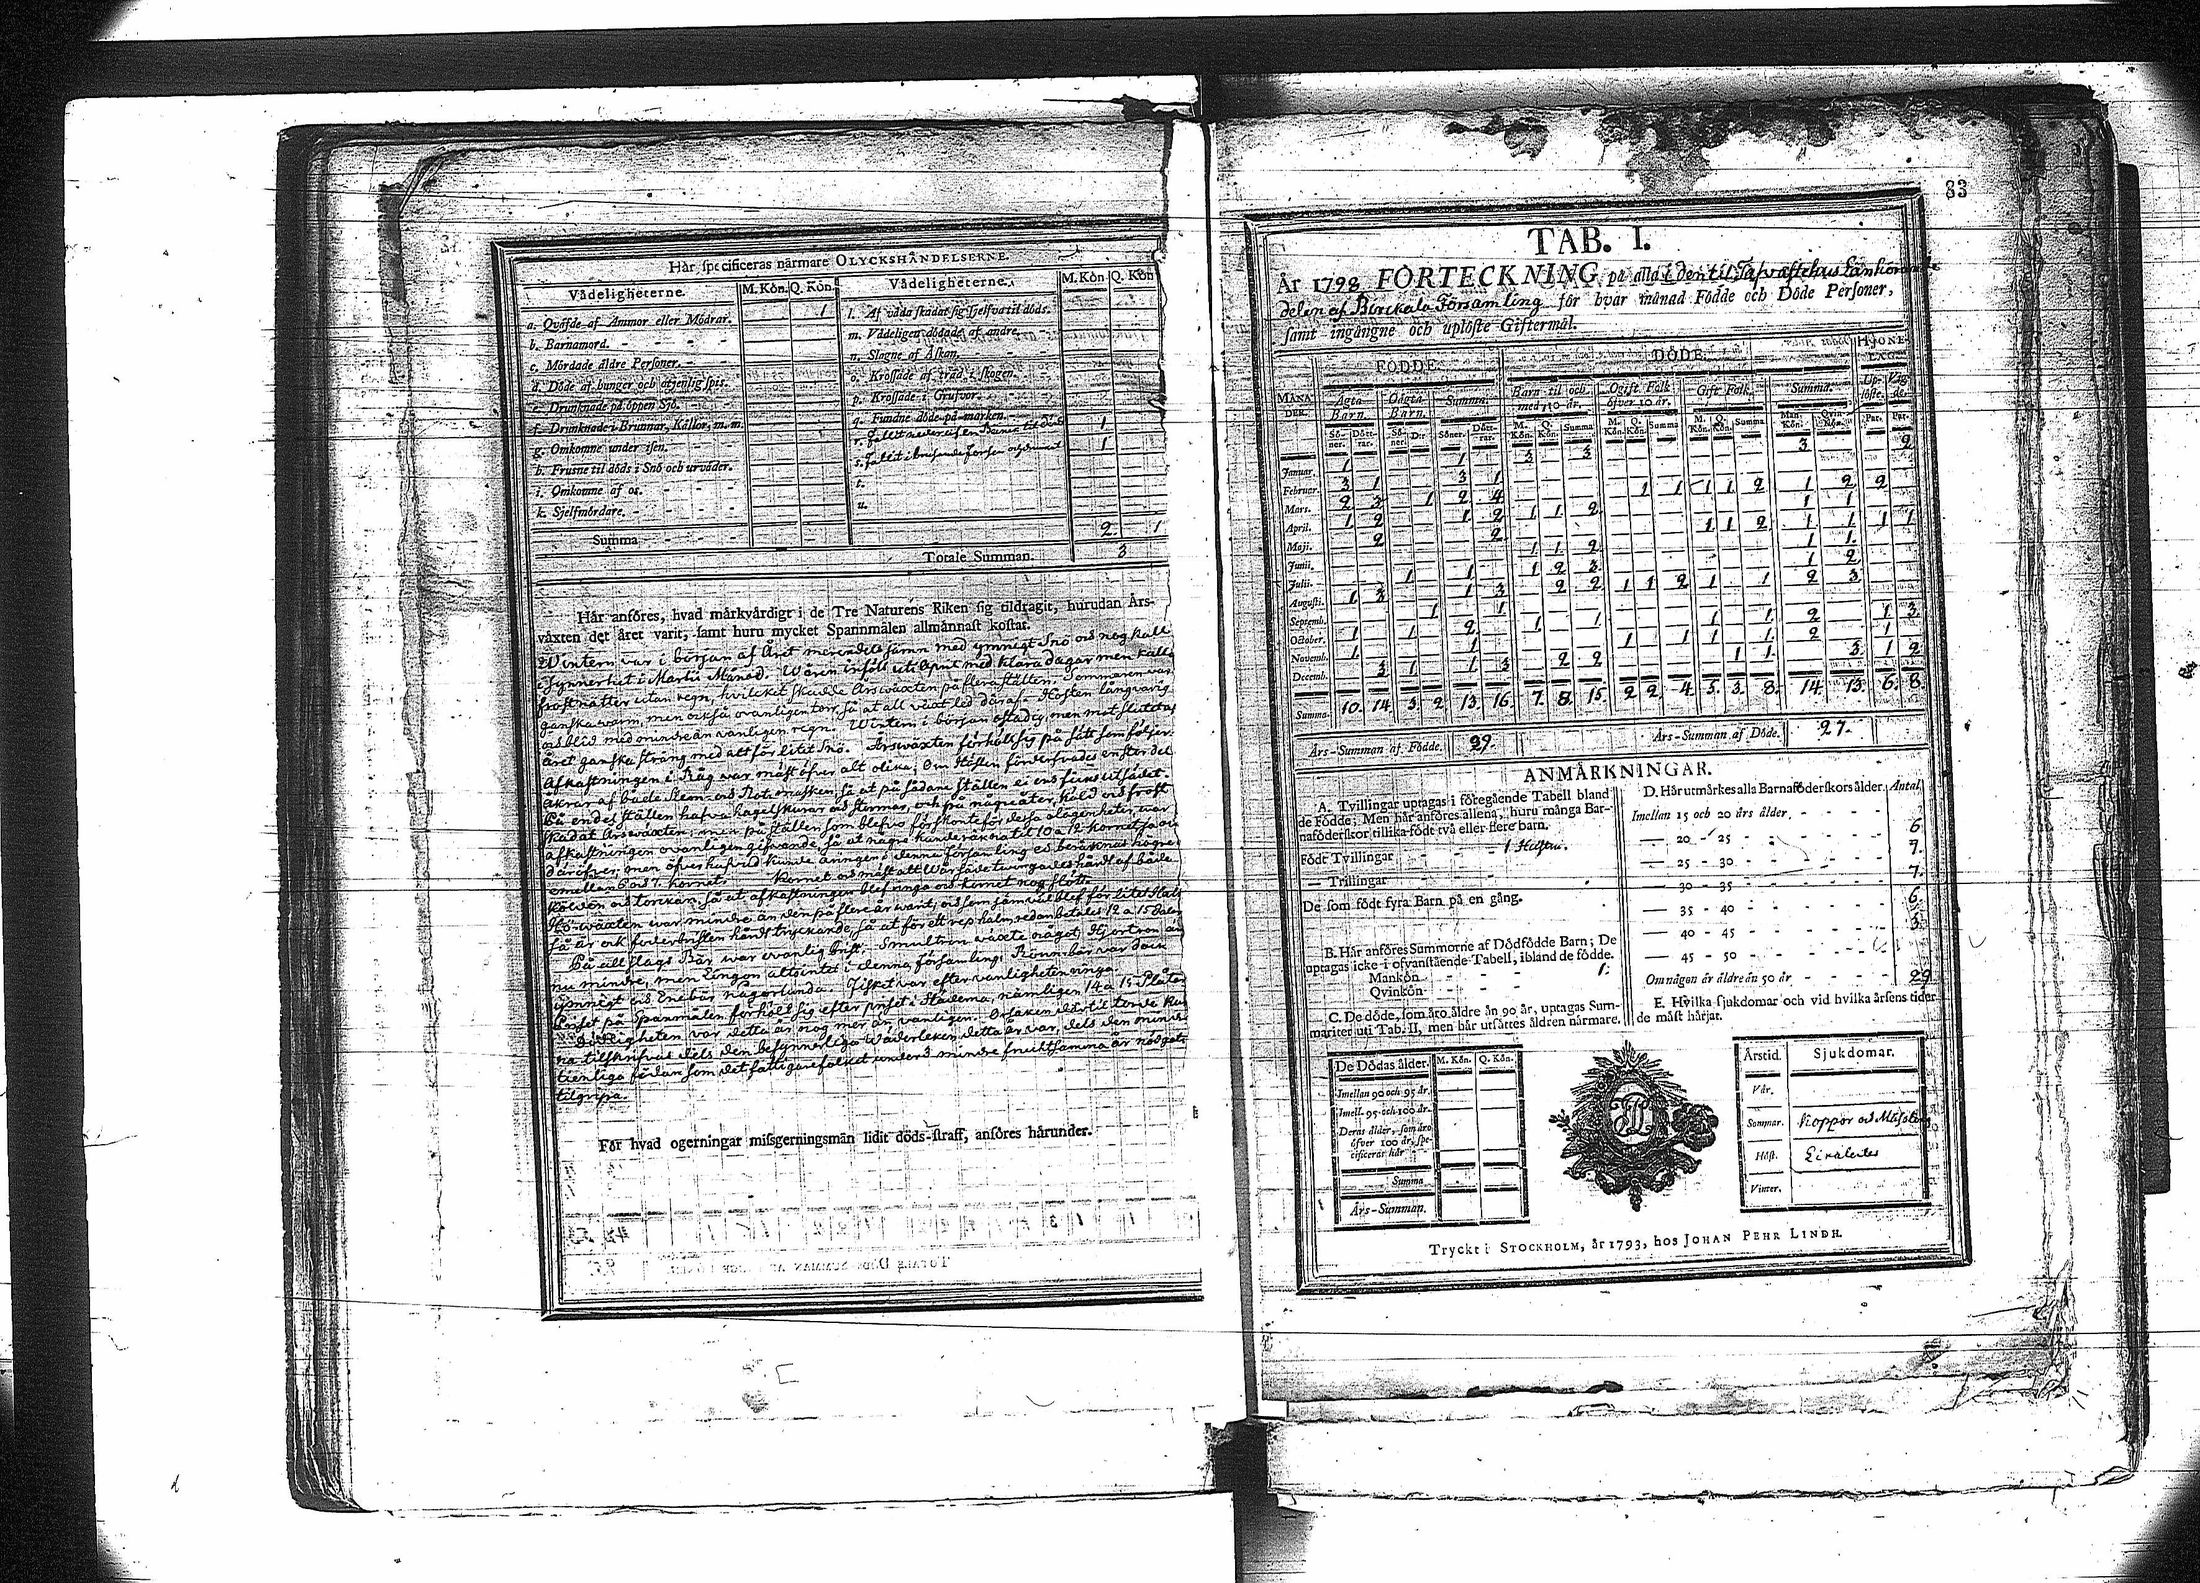 Här specificeras närmare OLYCKSHÄNDELSERNE.
Vådeligheterne. M. Kön. Q. Kön. Vådeligheterne. M. Kön. Q. Kön
a. Qväfde af Ammor eller Mödrar. 1 l. Af våda skadat sig sjelfva til döds.
b. Barnamord. m. Vådeligen dödade af andre.
c. Mördade äldre Personer. n. Slagne af Åskan.
d. Döde af hunger och otjenlig spis. o. Krossade af träd i skogen.
e. Drunknade på öppen Sjö. p. Krossade i Grufvor.
f. Drunknade i Brunnar, Källor, m. m. q. Fundne döde på marken.
g. Omkomne under isen. r. fallit neder ifrån til död 1
h. Frusne til döds i Snö och urväder. s. fallit i brusande forsen 1
i. Omkomne af os. t.
k. Sjelfmördare. u.
Summa 2. 1
Totale Summan. 3
Här anföres, hvad märkvärdigt i de Tre Naturens Riken sig tildragit, hurudan Års-
växten det året varit, samt huru mycket Spannmålen allmännast kostat.
Wintern var i början af Året merendels jämn med ymnigt Snö och nog kall
synnerhet i Martii Månad. Wåren inföll uti April med klara dagar men kalla
frostnätter utan regn, hvilcket skadde Årswäxten på flera ställen. Sommaren var
ganska warm, men också ovanligen torr, så at all växt led däraf. Hösten långvarig
och blid med mindre än vanligen regn. Wintern i början ostadig, men mot slutet af
året ganska sträng med alt för litet Snö. Årswäxten förhölt sig på sätt som följer:
Afkastningen i Råg war mäst öfver alt olika; Om Hösten förderfvades en stor del
åkrar af både Stem- och Rotemasken, så at på sådane ställen ei ens ficks utsädet.
På en del ställen hafva hagelskurar och stormar, och på några åter, köld och frost
skadat Årswäxten; men på ställen som blefvo förskonte för dessa olägenheter, war
afkastningen ovanligen gifvande, så at några kunde räkna til 10 a 12 kornet
däröfver, men öfverhufvud kunde äringen i denna församling ei beräknas högre
emellan 6 och 7. kornet. Kornet och mäst alt Wårsäde tvingades hårdt af både
kölden och torckan, så at afkastningen blef ringa och kornet nog slätt.
Hö-wäxten war mindre än den på flere år warit, och som jämväl blef för litet Halm
så är ock foderbristen hårdt tryckande, så at för ett rep halm redan betales 12 a 15 Daler
På all slags Bär war ovanlig brist. Smultron växte något, Hjortron än
nu mindre, men Lingon altsintet i denna församling. Rönnbär var dock
ymnigt och Enebär någorlunda. Fisket var efter vanligheten ringa.
Priset på Spanmålen förhölt sig efter priset i Städerna, nämligen 14 a 15 Plåtar
Dödeligheten var detta år nog mer än vanligen. Orsaken därtil torde kun
na tilskrifvas dels den besynnerliga Wäderleken detta år var, dels den mindre
tienliga födan som det fattigare folket under mindre fruktsamma år nödgats
tilgripa.
För hvad ogerningar missgerningsmän lidit döds-straff, anföres härunder.
83
TAB. I.
År 1798 FÖRTECKNING på alla i den til Tavastehus Län hörande
delen af Birckala Församling för hvar månad Födde och Döde Personer,
samt ingångne och uplöste Giftermål.
FÖDDE. DÖDE. HJONE-LAG
MÅNADER. Ägta Barn. Oägta Barn. Summa. Barn til och med 10 år. Ogift Folk öfver 10 år. Gift Folk. Summa. Uplöste. Vigde.
Söner. Döttrar. Söner. Dtr. Söner. Döttrar. M. Kön. Q. Kön. Summa M. Kön. Q. Kön. Summa M. Kön. Q. Kön. Summa Man Kön. Qvin Kön. Par. Par.
Januar. 1 1 3 3 3 2
Februar. 3 1 3 1 1 1 1 1 2 1 2 2
Mars. 2 3 1 2 4 1 1 2 1 1
April. 1 2 1 2 1 1 2 1 1 1 1
Maji. 2 2 1 1 2 1 1
Junii. 1 2 3 1 2
Julii. 1 1 2 2 1 1 2 1 1 2 3
Augusti. 1 3 1 3
Septemb. 1 1 1 1 1 1 2 1 3
October. 1 1 2 1 1 1 1 2 1
Novemb. 1 1 2 2 1 1 3 1 2
Decemb. 3 1 1 3
Summa 10. 14 3 2 13. 16. 7. 8. 15. 2 2. 4 5. 3. 8. 14 13. 6. 8.
Års-Summan af Födde. 29. Års-Summan af Döde. 27.
ANMÄRKNINGAR.
A. Tvillingar uptagas i föregående Tabell bland
de Födde; Men här anföres allena, huru många Bar-
naföderskor tillika födt två eller flere barn.
Födt Tvillingar 1 Hustru.
— Trillingar
De som födt fyra Barn på en gång.
B. Här anföres Summorne af Dödfödde Barn; De
uptagas icke i ofvanstående Tabell, ibland de födde.
Mankön 1.
Qvinkön
C. De döde, som äro äldre än 90 år, uptagas Sum-
mariter uti Tab. II, men här utsättes åldren närmare.
D. Här utmärkes alla Barnaföderskors ålder. Antal
Imellan 15 och 20 års ålder
— 20 - 25 6
— 25 - 30 7.
— 30 - 35 7.
— 35 - 40 6
— 40 - 45 3.
— 45 - 50
Om någon är äldre än 50 år 29
E. Hvilka sjukdomar och vid hvilka årsens tider
de mäst härjat.
De Dödas ålder. M. Kön. Q. Kön.
Imellan 90 och 95 år.
Imell. 95 och 100 år.
Deras ålder, som äro
öfver 100 år, spe-
cificeras här
Summa
Års-Summan.
Årstid. Sjukdomar.
Vår.
Sommar. Koppor och Mässling
Höst.
Vinter.
Tryckt i STOCKHOLM, år 1793, hos JOHAN PEHR LINDH.